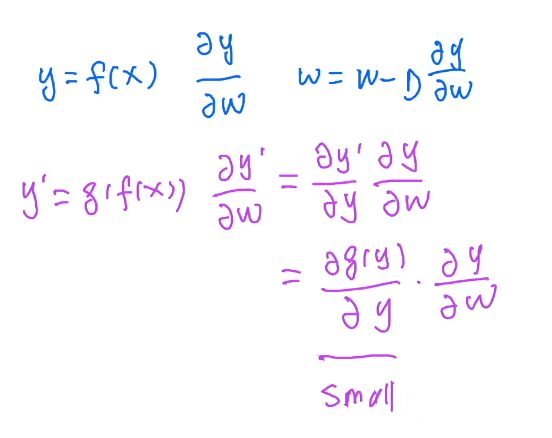 y = f(x) ∂y/∂w w = w - η ∂y/∂w
y' = g(f(x)) ∂y'/∂w = ∂y'/∂y ∂y/∂w
= ∂g(y)/∂y · ∂y/∂w
small